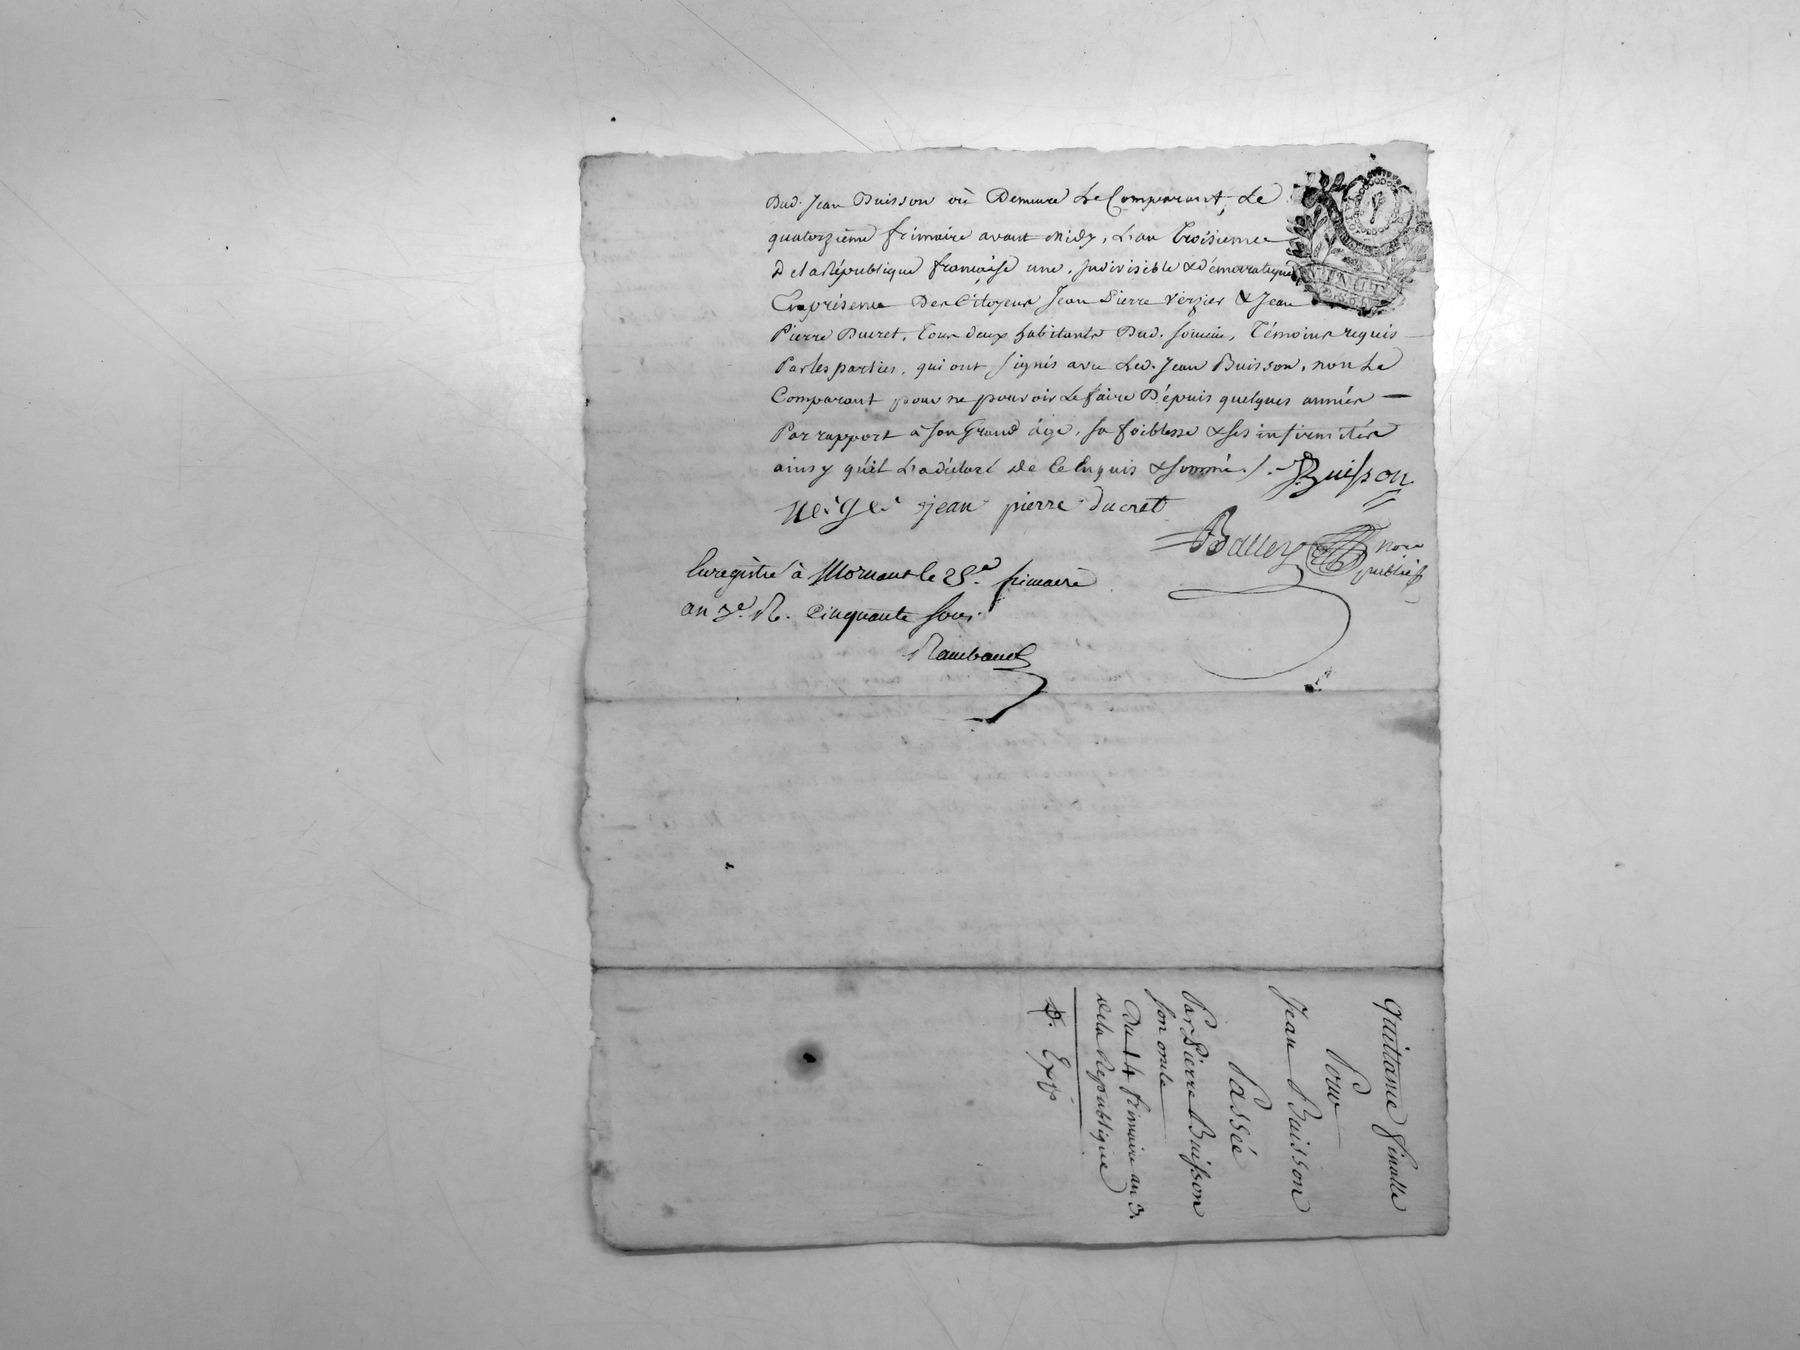 Dud. Jean Buisson où Demeure Le Comparant, Le
quatorzieme frimaire avant Midy, L'an troisieme
De la République française une, indivisible & démocratique
En présence Des Citoyens Jean Pierre Verzier & Jean
Pierre Ducret, tous deux habitants Dud. Témoins requis
Par les parties, qui ont signés avec Led. Jean Buisson, non Le
Comparant pour ne pouvoir Le faire Dépuis quelques années
Par rapport à son Grand âge, sa foiblesse & ses infirmités
ainsy qu'il L'a déclaré de ce Enquis & sommé /. J. Buisson
jean pierre ducret
Balley nore
public
Enregistré à Mornant le 25.e frimaire
an 3.e R. Cinquante sous.
Rambaud
quittance finalle
Pour
Jean Buisson
Passée
Par Pierre Buisson
son oncle
Du 14 frimaire an 3.
de la Republique
Exp.